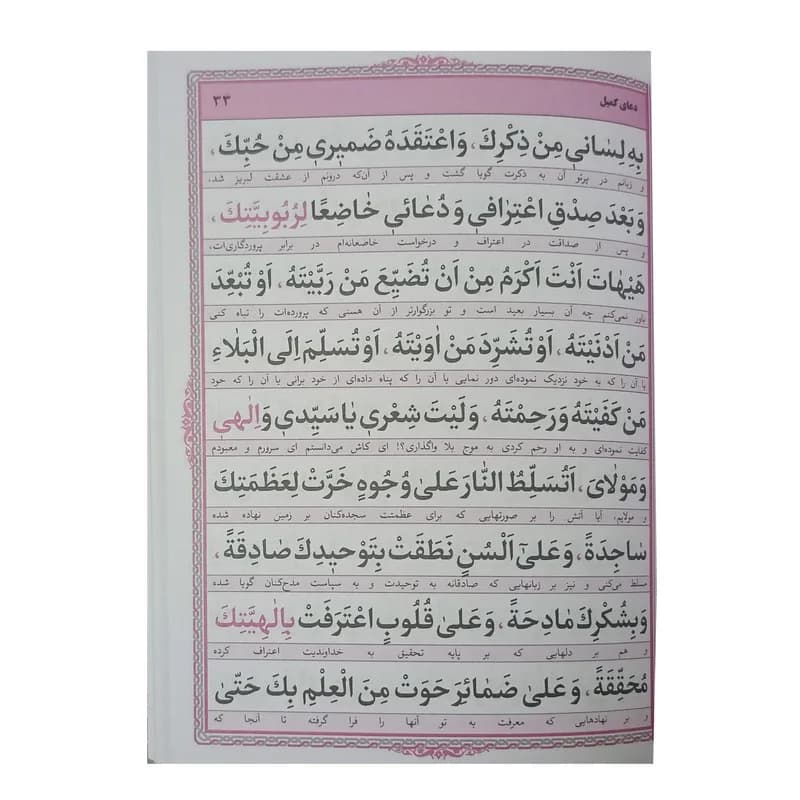 دعای کمیل ۳۳
بِهِ لِسٰانی مِنْ ذِکْرِكَ، وَاعْتَقَدَهُ ضَمیری مِنْ حُبِّكَ،
و زبانم در پرتو آن به ذکرت گویا گشت و پس از آن‌که درونم از عشقت لبریز شد،
وَبَعْدَ صِدْقِ اعْتِرٰافی وَدُعٰائی خٰاضِعًا لِرُبُوبِیَّتِكَ،
و پس از صداقت در اعتراف و درخواست خاضعانه‌ام در برابر پروردگاری‌ات،
هَیْهٰاتَ اَنْتَ اَکْرَمُ مِنْ اَنْ تُضَیِّعَ مَنْ رَبَّیْتَهُ، اَوْ تُبْعِّدَ
باور نمی‌کنم چه آن بسیار بعید است و تو بزرگوارتر از آن هستی که پرورده‌ات را تباه کنی
مَنْ اَدْنَیْتَهُ، اَوْ تُشَرِّدَ مَنْ اٰوَیْتَهُ، اَوْ تُسَلِّمَ اِلَی الْبَلٰاءِ
یا آن را که به خود نزدیک نموده‌ای دور نمایی یا آن را که پناه داده‌ای از خود برانی یا آن را که خود
مَنْ کَفَیْتَهُ وَرَحِمْتَهُ، وَلَیْتَ شِعْری یٰا سَیِّدی وَاِلٰهی
کفایت نموده‌ای و به او رحم کردی به موج بلا واگذاری؟! ای کاش می‌دانستم ای سرورم و معبودم
وَمَوْلٰایَ، اَتُسَلِّطُ النّٰارَ عَلیٰ وُجُوهٍ خَرَّتْ لِعَظَمَتِكَ
و مولایم، آیا آتش را بر صورتهایی که برای عظمتت سجده‌کنان بر زمین نهاده شده
سٰاجِدَةً، وَعَلیٰٓ اَلْسُنٍ نَطَقَتْ بِتَوْحیدِكَ صٰادِقَةً،
مسلط می‌کنی و نیز بر زبانهایی که صادقانه به توحیدت و به سپاست مدح‌کنان گویا شده
وَبِشُکْرِكَ مٰادِحَةً، وَعَلیٰ قُلُوبٍ اعْتَرَفَتْ بِاِلٰهِیَّتِكَ
و هم بر دلهایی که بر پایه تحقیق به خداوندیت اعتراف کرده
مُحَقِّقَةً، وَعَلیٰ ضَمٰائِرَ حَوَتْ مِنَ الْعِلْمِ بِكَ حَتّیٰ
و بر نهادهایی که معرفت به تو آنها را فرا گرفته تا آنجا که